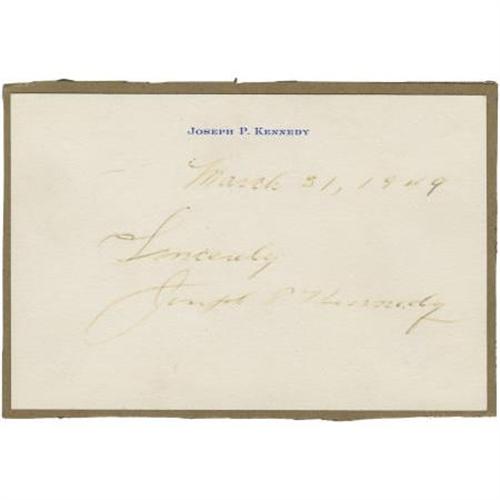 JOSEPH P. KENNEDY
March 31, 1949
Sincerely
Joseph P Kennedy